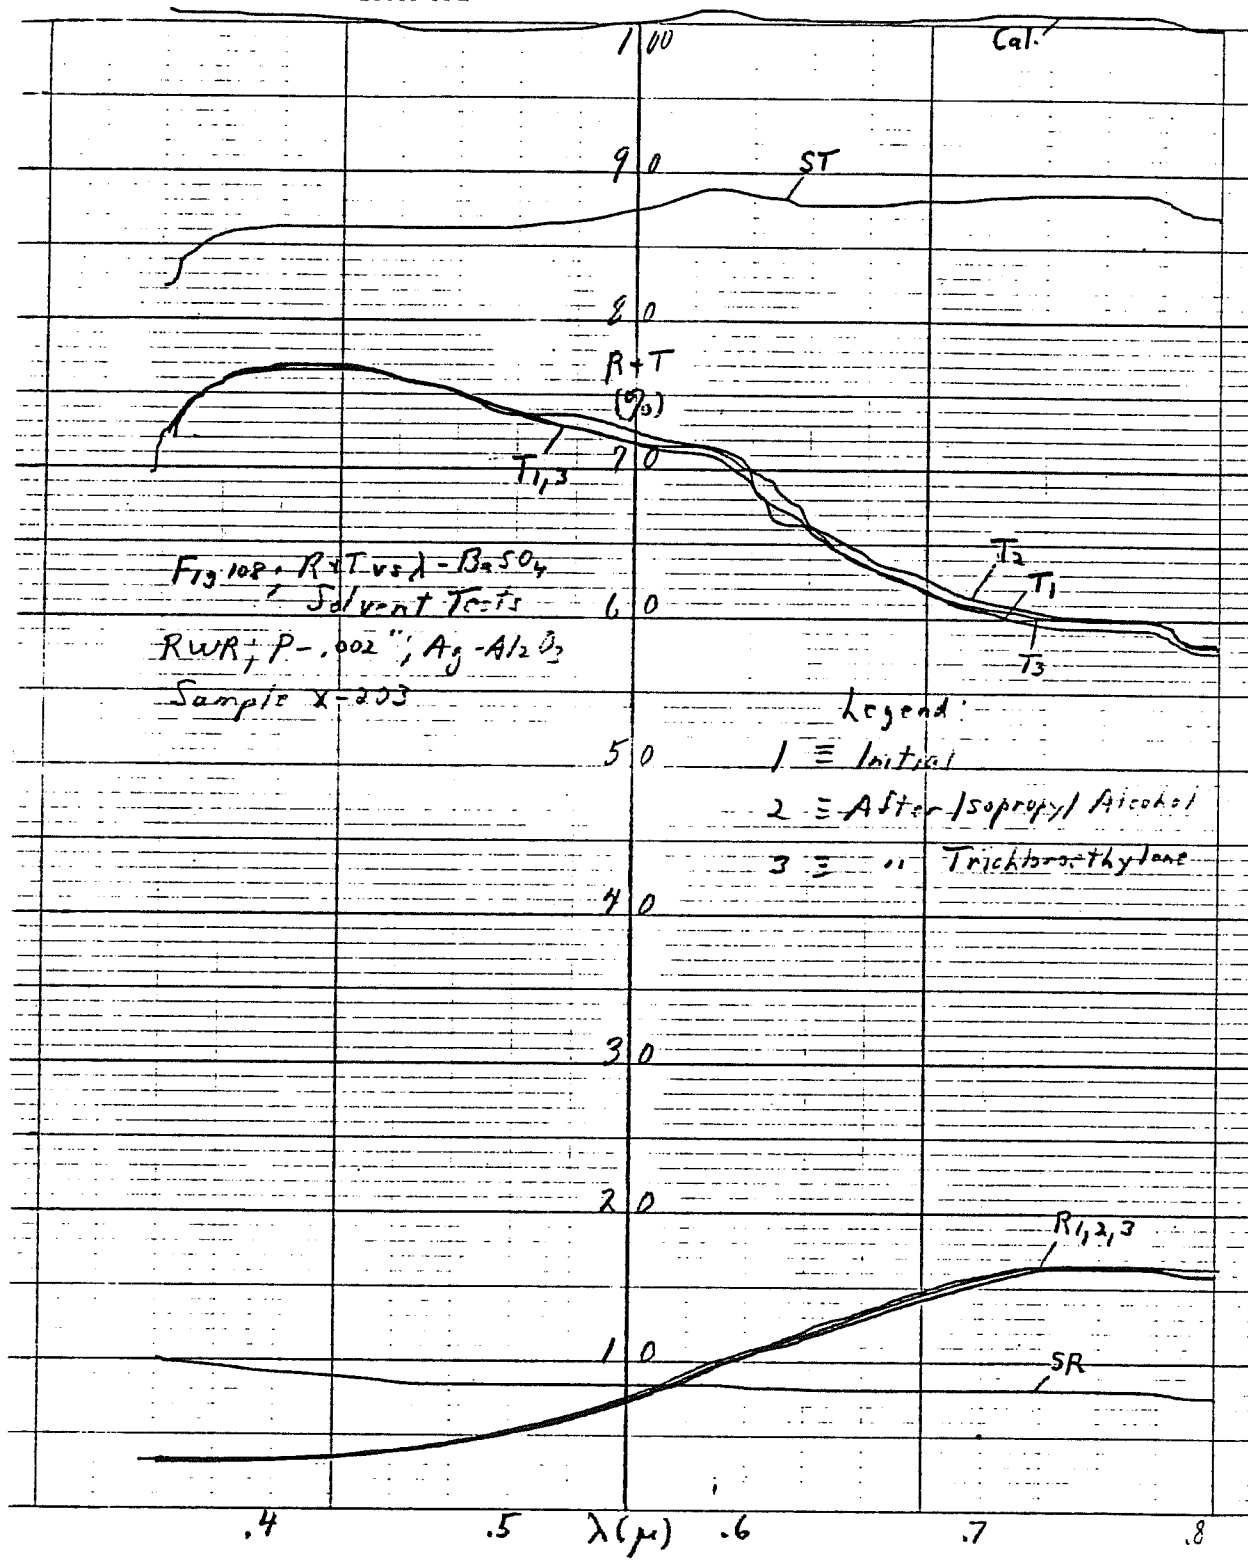 1.00
Cal.
90
ST
80
R+T
(%)
T1,3
70
T2
Fig 108; R+T vs λ - BaSO4
Solvent Tests
T1
60
RWR; P-.002"; Ag-Al2O3
T3
Sample X-203
Legend:
50
1 ≡ Initial
2 ≡ After Isopropyl Alcohol
3 ≡ " Trichloroethylene
40
30
20
R1,2,3
10
SR
.4 .5 λ(μ) .6 .7 .8